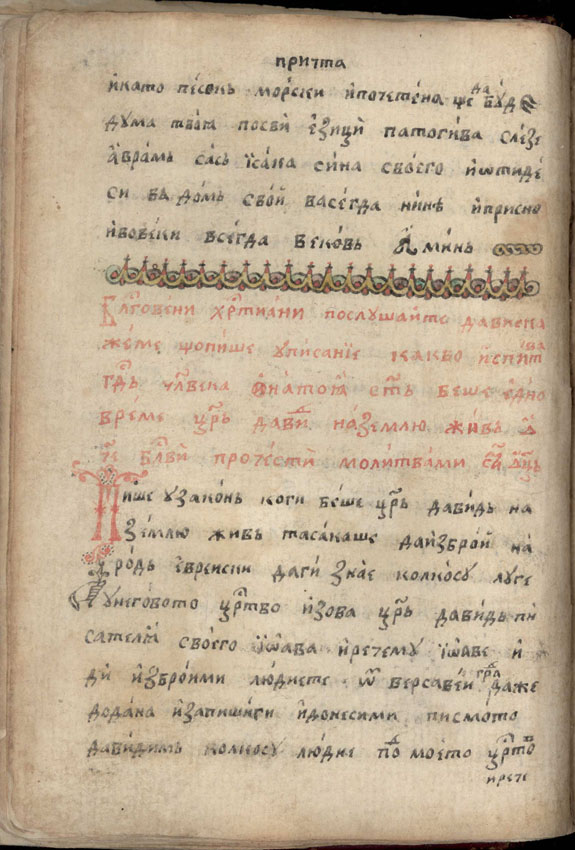 притта
и҆като пе́сень мо́рски и҆почете́на ѱе да бꙋ́де
дꙋма твоѧ посвѝ є҆зицѝ патоги́ва сле́зе
а҆врамь сась і҆са́ка си́на своего и҆ѿтиде́
си ва до́мь сво́й васегда ни́нѣ и҆присно
и҆вовеки всегда веко́вь А҆минь
Бл҃гове́ни хрⷭ҇тиа́ни послꙋша́йте да ви ска
же́ме що пи́ше ꙋписа́нїе какво и҆спитꙋва
гдⷭ҇ь чл҃века
бе́ше є҆дно
вре́ме цр҃ь даві́дь на́землю жи́вь
бл҃ви́ проче́сти моли́твами
Пи́ше ꙋзако́нь коги бе́ше цр҃ь дави́дь на
зе́млю живь та са́каше да и҆збро́и на
ро́дь є҆вре́иски да ги зна́е колко сꙋ лꙋге
ꙋнего́вото цр҃тво и҆зова цр҃ь дави́дь пи
са́телѧ своего і҆ѡ҆ава и҆рече мꙋ і҆ѡ҆аве и҆
ди и҆збро́и ми лю́диете ѿ версаве́и гра́да да́же
до да́на и҆запиши ги и҆донеси ми писмото
да ви́димь колко сꙋ лю́дие по́д мое́то цр҃тво
и҆рече